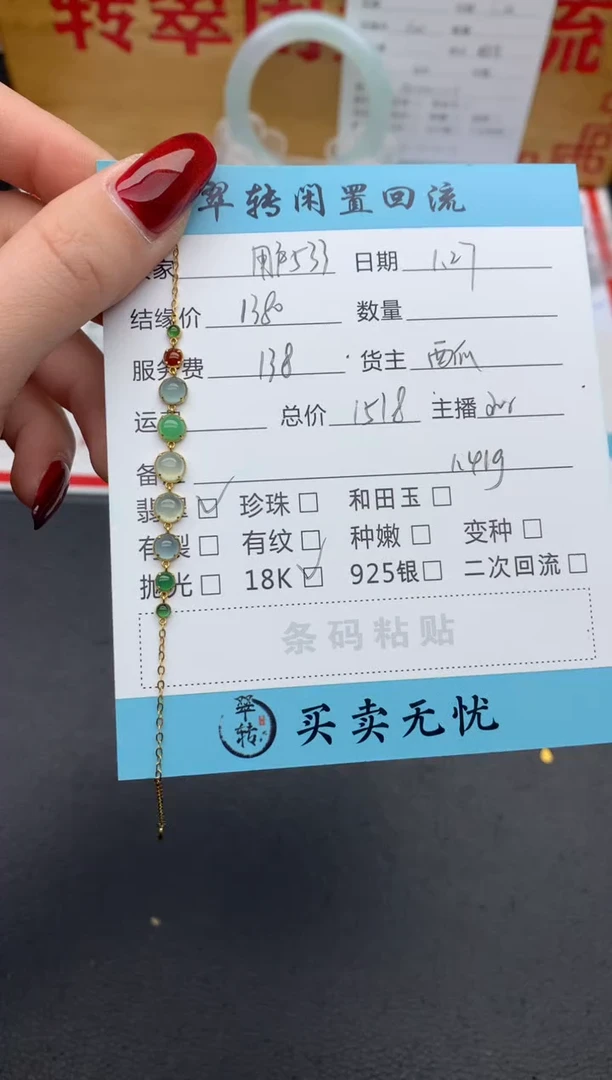 转翠闲 流
翠转闲置回流
家 用户533 日期 1.27
结缘价 1380 数量
服务费 138 货主 西瓜
运 总价 1518 主播
备 1.419
翡翠 ☑ 珍珠 □ 和田玉 □
有裂 □ 有纹 □ 种嫩 □ 变种 □
抛光 □ 18K ☑ 925银 □ 二次回流 □
条码粘贴
翠转 买卖无忧